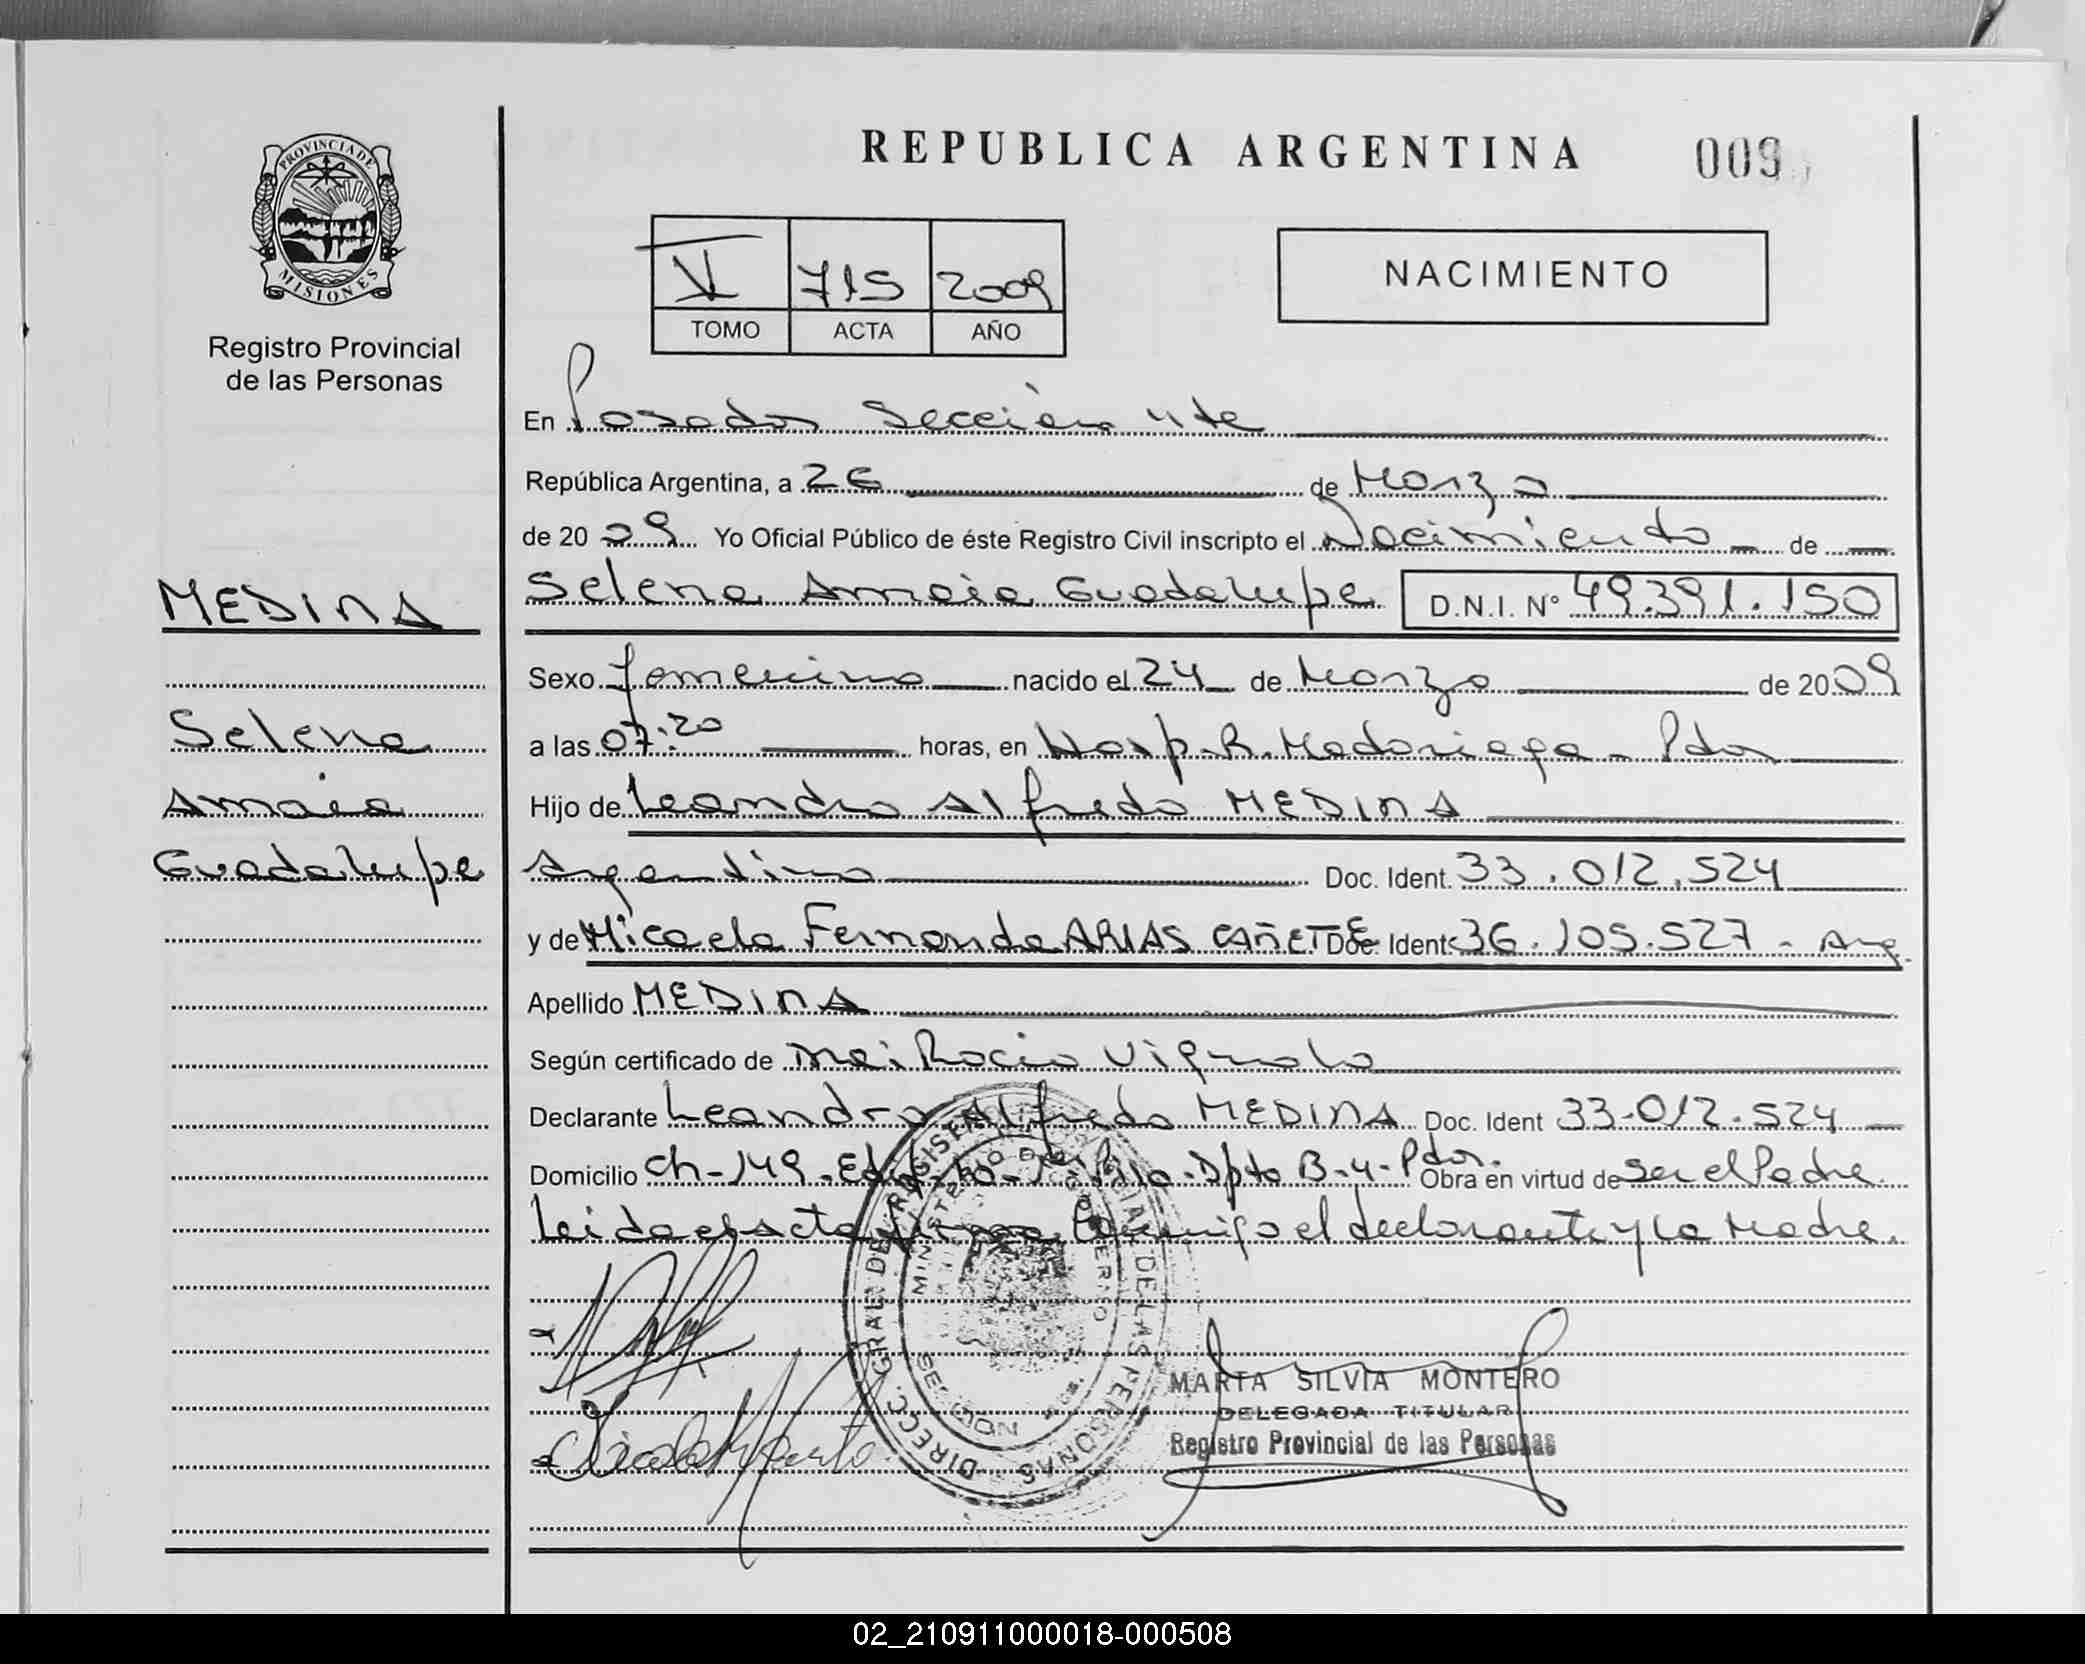 REPUBLICA ARGENTINA
009
PROVINCIA DE
MISIONES
Registro Provincial
de las Personas
V 715 2009
TOMO ACTA AÑO
NACIMIENTO
En Posadas Sección 4te
República Argentina, a 26 de Marzo
de 2009 Yo Oficial Público de éste Registro Civil inscripto el Nacimiento de
MEDINA
Selena Amaia Guadalupe D.N.I. N° 49.391.150
Sexo femenino nacido el 24 de Marzo de 2009
Selena
a las 07:20 horas, en Hosp. R. Madariaga - Pdas
Amaia
Hijo de Leandro Alfredo MEDINA
Guadalupe
Argentino Doc. Ident. 33.012.524
y de Micaela Fernanda ARIAS CAÑETE Doc. Ident. 36.105.527 - Arg.
Apellido MEDINA
Según certificado de Rocio Vignolo
Declarante Leandro Alfredo MEDINA Doc. Ident 33.012.524
Domicilio Ch-149. Dpto B-4-Pdas. Obra en virtud de ser el Padre.
Leida el acta firman conmigo el declarante y la Madre.
DIRECC. GRAL. DEL REGISTRO PROVINCIAL DE LAS PERSONAS
MINISTERIO DE GOBIERNO
MARTA SILVIA MONTERO
DELEGADA TITULAR
Registro Provincial de las Personas
02_210911000018-000508